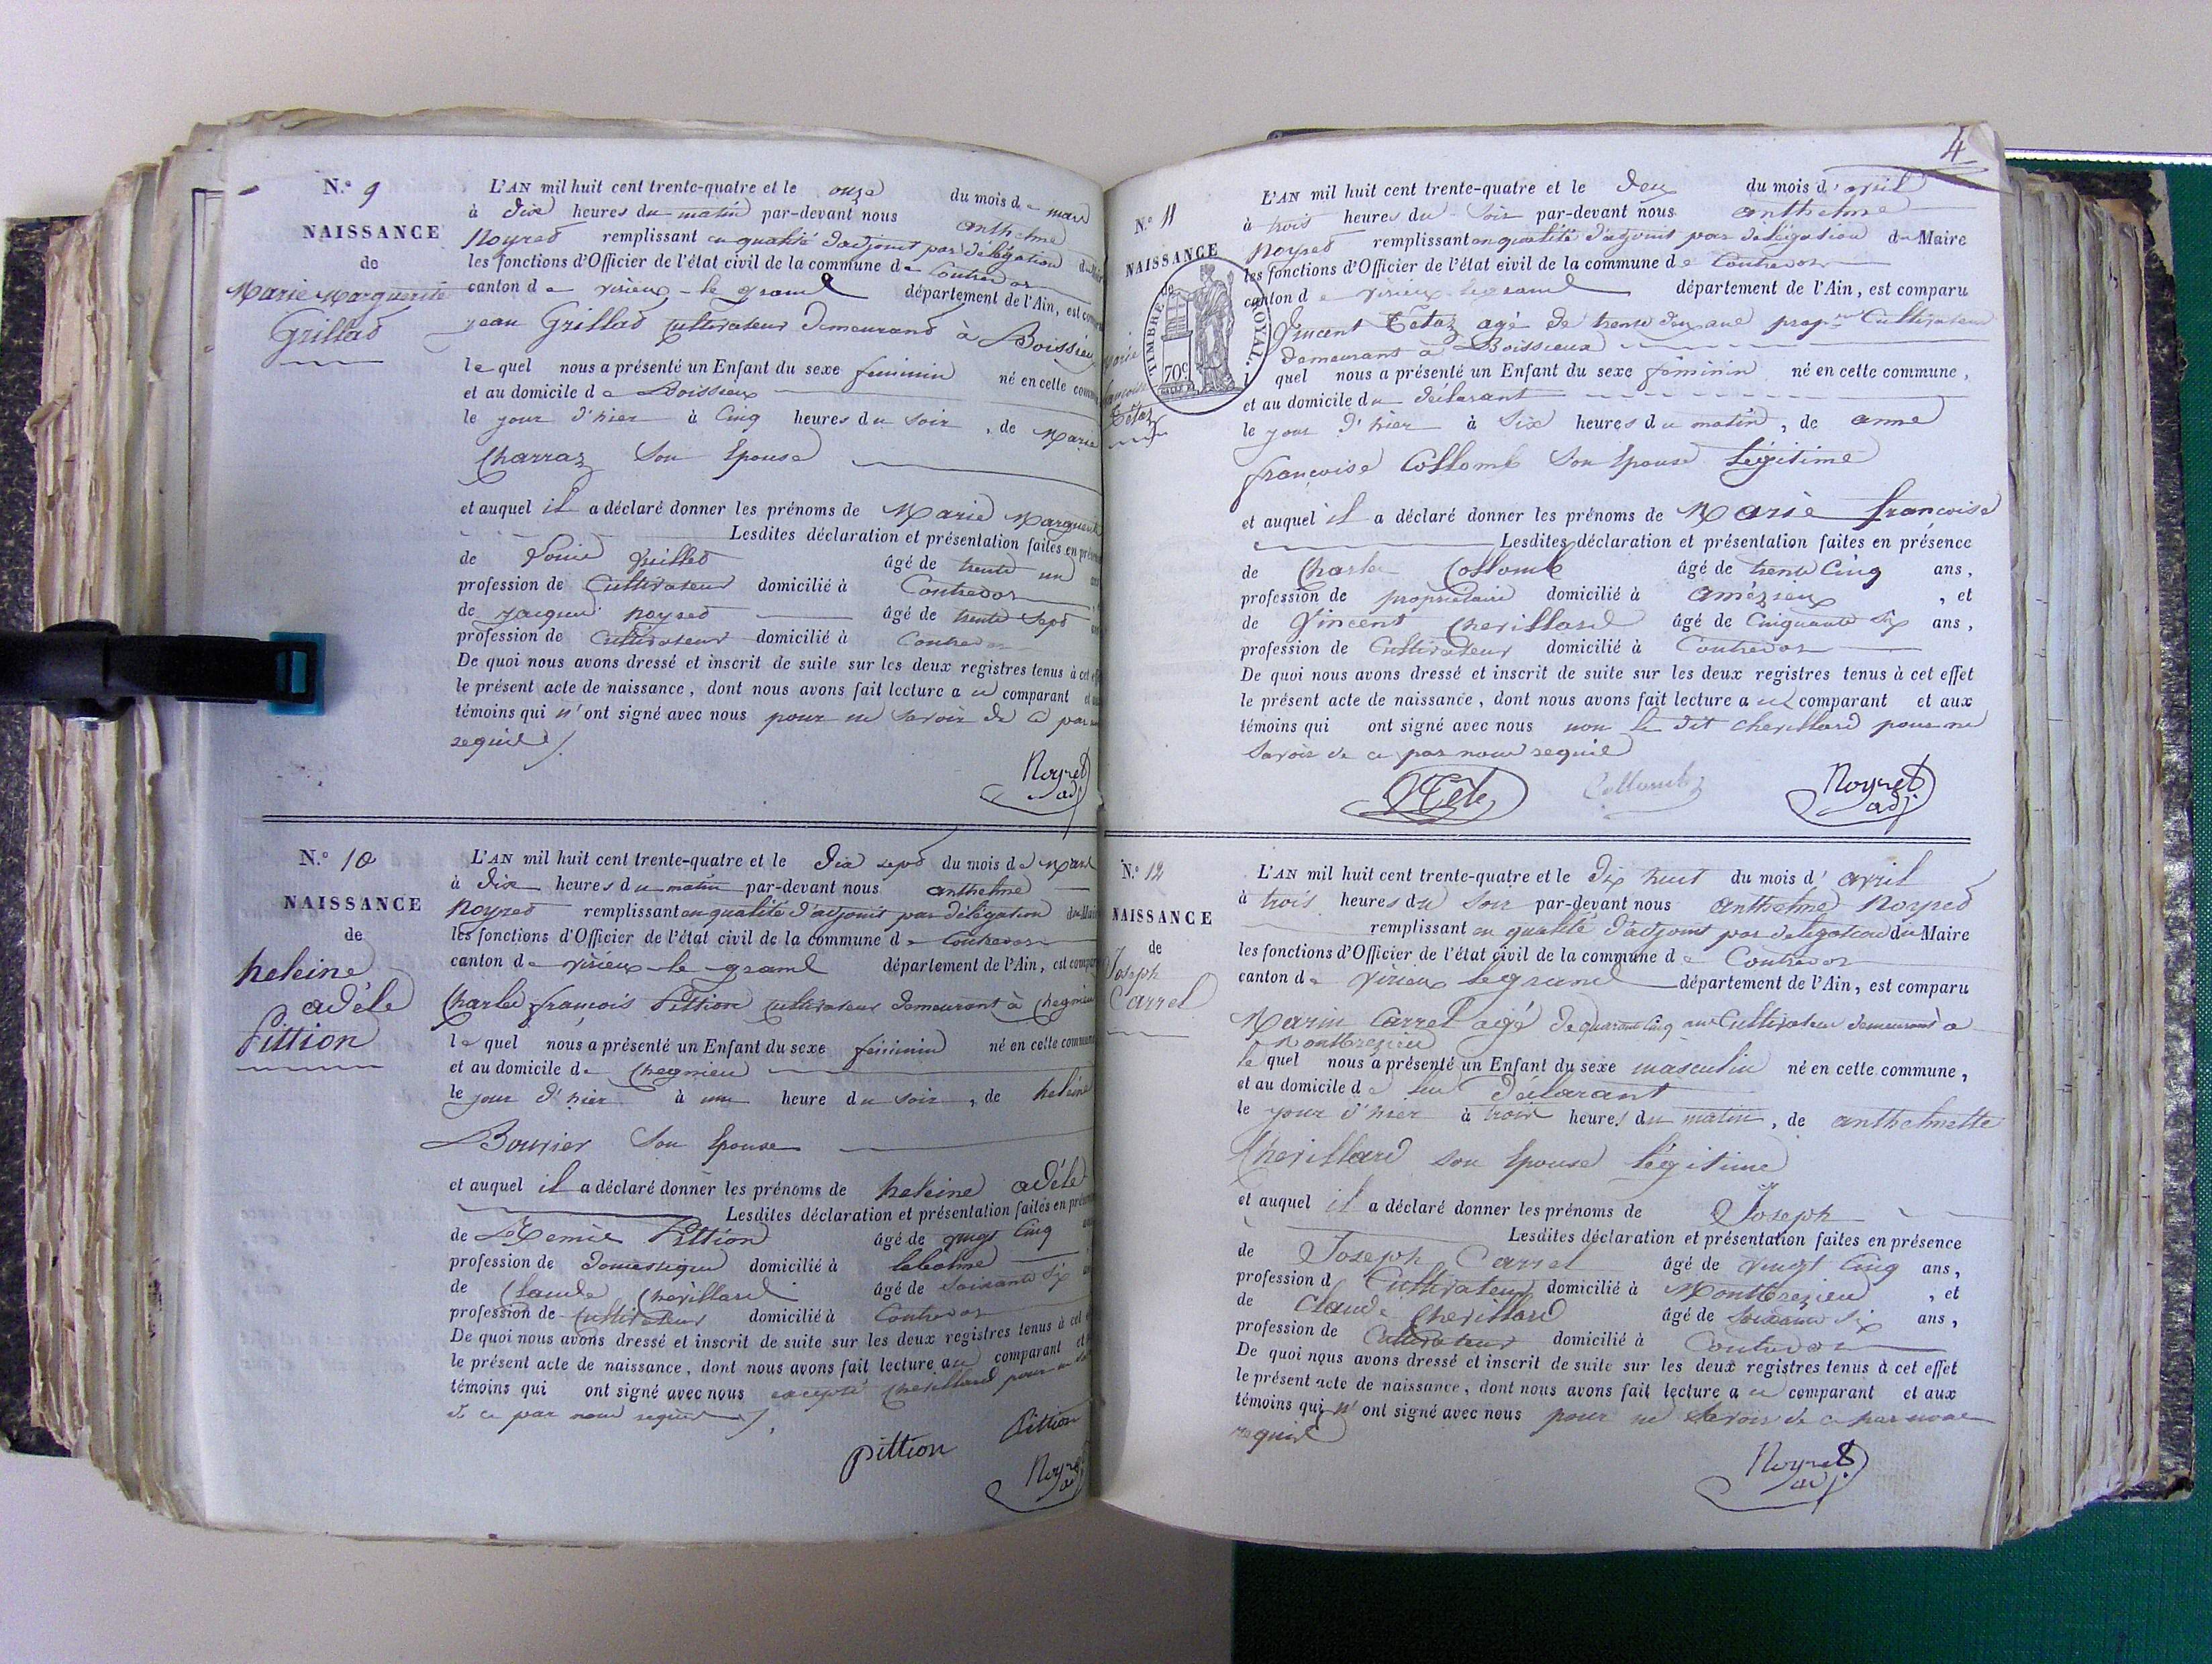 N.° 9
NAISSANCE
de
Marie Marguerite
Grillad
L'AN mil huit cent trente-quatre et le onze du mois de mars
à dix heures du matin par-devant nous anthelme
Noyred remplissant en qualité d'adjoint par délégation du Maire
les fonctions d'Officier de l'état civil de la commune de Contrevoz
canton de virieux-le grand département de l'Ain, est comp
jean Grillad cultivateur demeurand à Boissieu
le quel nous a présenté un Enfant du sexe feminin né en cette comm
et au domicile de Boissieux
le jour d'hier à Cinq heures du soir, de Marie
Charraz son Epouse
et auquel il a déclaré donner les prénoms de Marie Marguerite
Lesdites déclaration et présentation faites en prése
de Louis juilled âgé de trente un
profession de Cultivateur domicilié à Contrevoz
de jacque noyred âgé de trente sept
profession de Cultivateur domicilié à Contrevo
De quoi nous avons dressé et inscrit de suite sur les deux registres tenus à cet eff
le présent acte de naissance, dont nous avons fait lecture a ce comparant et au
témoins qui n'ont signé avec nous pour ne savoir de ce par
requis
Noyret
adj
N.° 10
NAISSANCE
de
heleine
adèle
Pittion
L'AN mil huit cent trente-quatre et le dix sept du mois de Mars
à dix heures du matin par-devant nous anthelme
Noyred remplissant en qualité d'adjoint par délégation du Mair
les fonctions d'Officier de l'état civil de la commune de Contrevoz
canton de virieux-le-grand département de l'Ain, est compar
Charles françois Pittion cultivateur demeurant à Chegnieu
le quel nous a présenté un Enfant du sexe féminin né en cette commun
et au domicile de Chegnieu
le jour d'hier à une heure du soir, de heleine
Bouvier son Epouse
et auquel il a déclaré donner les prénoms de heleine adèle
Lesdites déclaration et présentation faites en prése
de Pittion âgé de vingt Cinq
profession de domestique domicilié à labalme
de Claude Cherillard âgé de soixante six
profession de Cultivateur domicilié à Contrevoz
De quoi nous avons dressé et inscrit de suite sur les deux registres tenus à cet
le présent acte de naissance, dont nous avons fait lecture au comparant et
témoins qui ont signé avec nous excepté Cherillard pour ne
de ce par nous requis
pittion Pittion
Noyret
ad
4
N.° 11
NAISSANCE
de
Marie
françoise
Tétaz
TIMBRE ROYAL.
70c
L'AN mil huit cent trente-quatre et le deux du mois d'avril
à trois heures du soir par-devant nous anthelme
Noyred remplissant en qualité d'adjoint par délégation du Maire
les fonctions d'Officier de l'état civil de la commune de Contrevoz
canton de virieux-le grand département de l'Ain, est comparu
Vincent Tétaz agé de trente deux ans propre Cultivateur
demeurant à Boissieux
l quel nous a présenté un Enfant du sexe féminin né en cette commune,
et au domicile du déclarant
le jour d'hier à six heures du matin, de anne
françoise Collomb son Epouse légitime
et auquel il a déclaré donner les prénoms de Marie françoise
Lesdites déclaration et présentation faites en présence
de Charles Collomb âgé de trente Cinq ans,
profession de propriétaire domicilié à amézieux, et
de Vincent Cherillard âgé de Cinquante six ans,
profession de Cultivateur domicilié à Contrevoz
De quoi nous avons dressé et inscrit de suite sur les deux registres tenus à cet effet
le présent acte de naissance, dont nous avons fait lecture a ce comparant et aux
témoins qui ont signé avec nous non le dit cherillard pour ne
savoir de ce par nous requis
Collomb
Noyret
adj.
N.° 12
NAISSANCE
de
Joseph
Carrel
L'AN mil huit cent trente-quatre et le dix huit du mois d'avril
à trois heures du soir par-devant nous anthelme Noyred
remplissant en qualité d'adjoint par délégation du Maire
les fonctions d'Officier de l'état civil de la commune de Contrevoz
canton de virieux le grand département de l'Ain, est comparu
Marin Carrel agé de quarante Cinq ans Cultivateur demeurant a
Montbrezieu
le quel nous a présenté un Enfant du sexe masculin né en cette commune,
et au domicile de lui déclarant
le jour d'hier à trois heures du matin, de anthelmette
Cherillard son Epouse légitime
et auquel il a déclaré donner les prénoms de Joseph
Lesdites déclaration et présentation faites en présence
de Joseph Carrel âgé de vingt Cinq ans,
profession d Cultivateur domicilié à Montbrezieu, et
de Claude Cherillard âgé de soixante six ans,
profession de Cultivateur domicilié à Contrevoz
De quoi nous avons dressé et inscrit de suite sur les deux registres tenus à cet effet
le présent acte de naissance, dont nous avons fait lecture a ce comparant et aux
témoins qui n'ont signé avec nous pour ne savoir de ce par nous
requis
Noyret
adj.